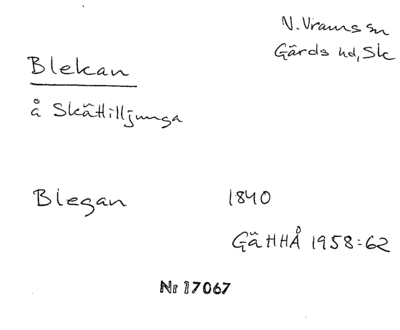 N. Vrams sn
Gärds hd, Sk
Blekan
å Skättilljunga
Blegan 1840
GäHHÅ 1958:62
Nr 17067